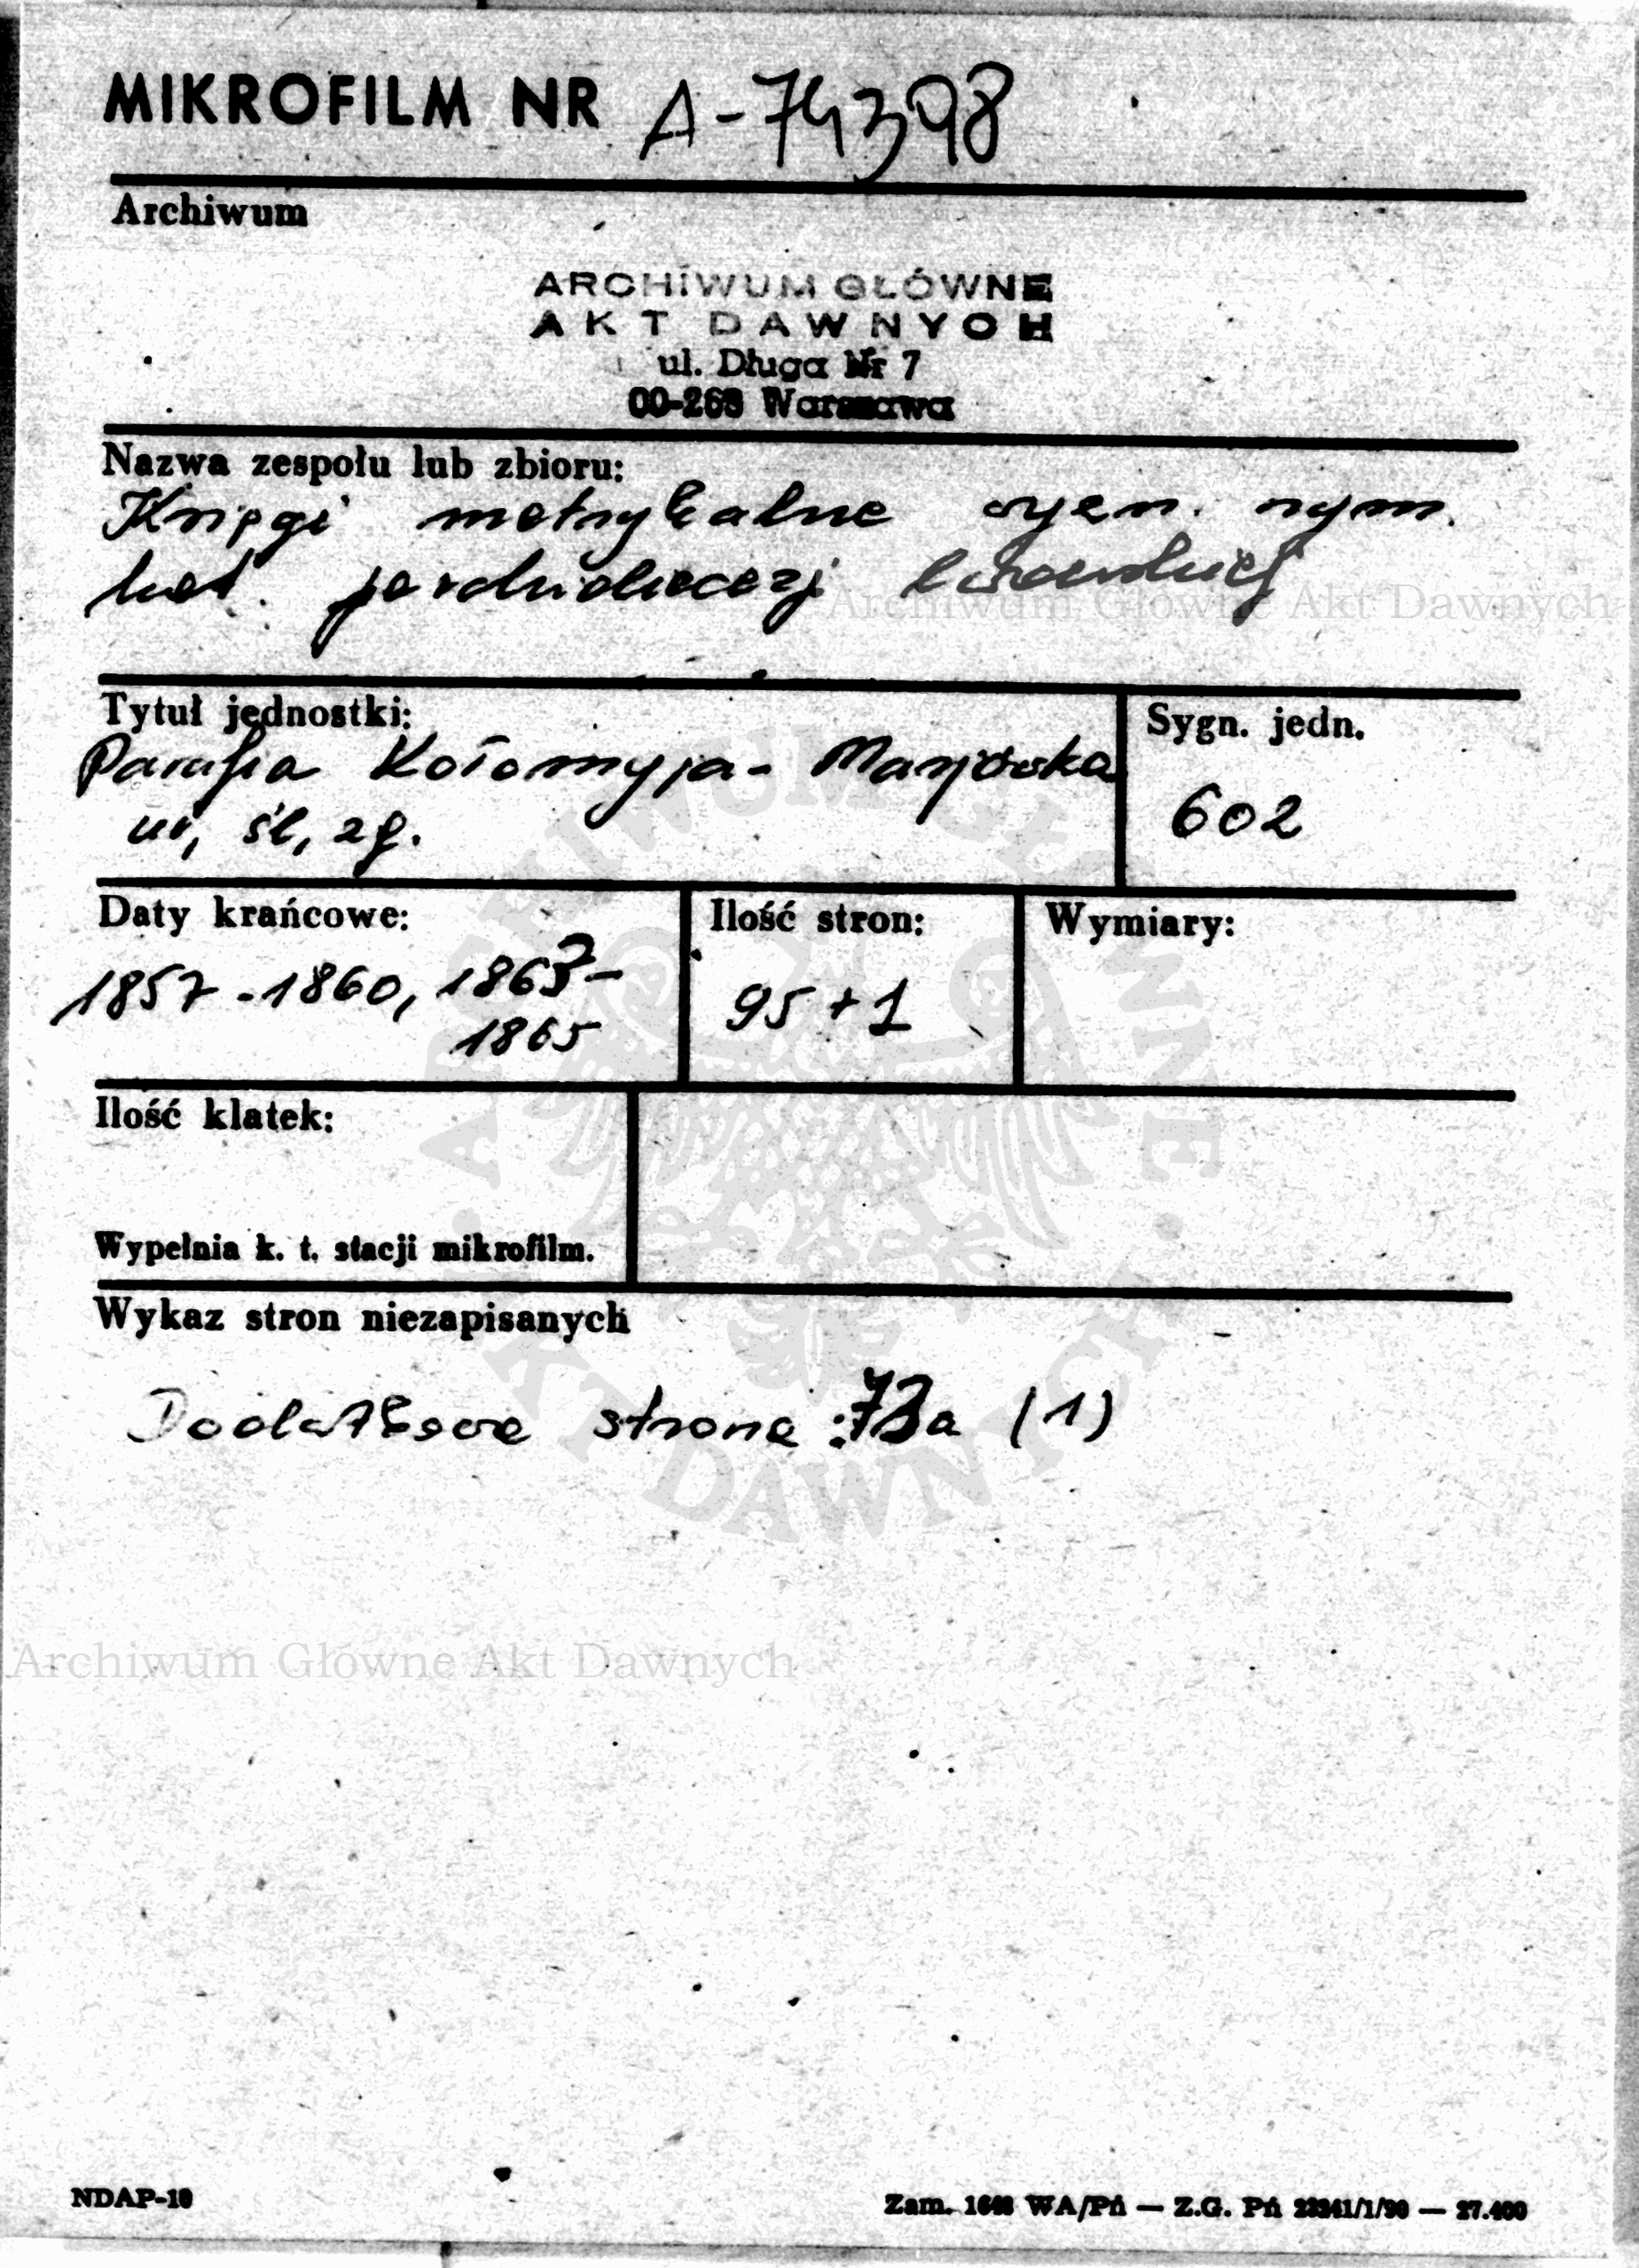 MIKROFILM NR A-74398
Archiwum
ARCHIWUM GŁÓWNE
AKT DAWNYCH
ul. Długa Nr 7
00-263 Warszawa
Nazwa zespołu lub zbioru:
Księgi metrykalne rzym.
kat. archidiecezji lwowskiej
Archiwum Główne Akt Dawnych
Tytuł jednostki:
Parafia Kołomyja - Marjówka
ur, śl, zg.
Sygn. jedn.
602
Daty krańcowe:
1857 - 1860, 1863-
1865
Ilość stron:
95 + 1
Wymiary:
Ilość klatek:
Wypełnia k. t. stacji mikrofilm.
Wykaz stron niezapisanych
Dodatkowa strona : 73a (1)
ARCHIWUM GŁÓWNE AKT DAWNYCH
Archiwum Główne Akt Dawnych
NDAP-10
Zam. WA/Pń — Z.G. Pń — 27.400